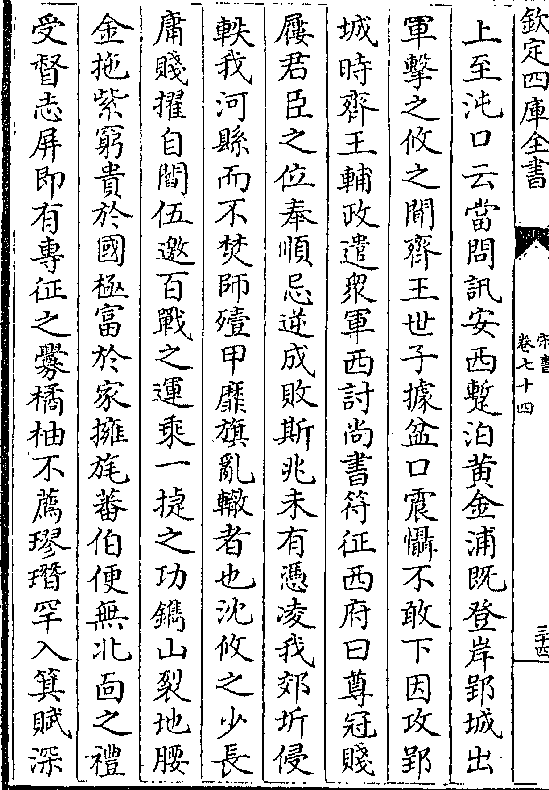 欽定四庫全書
宋書
卷七十四
三十四
上至沌口云當問訊安西蹔泊黄金浦既登岸郢城出
軍擊之攸之間齊王世子據盆口震懾不敢下因攻郢
城時齊王輔政遣衆軍西討尚書符征西府曰尊冠賤
屨君臣之位奉順忌逆成敗斯兆未有憑凌我郊圻侵
軼我河縣而不焚師殪甲靡旗亂轍者也沈攸之少長
庸賤擢自閻伍邀百戰之運乘一㨗之功鐫山裂地腰
金拖紫窮貴於國極富於家擁旄蕃伯便無北面之禮
受督志屏即有專征之釁橘柚不薦璆瑨罕入箕賦深